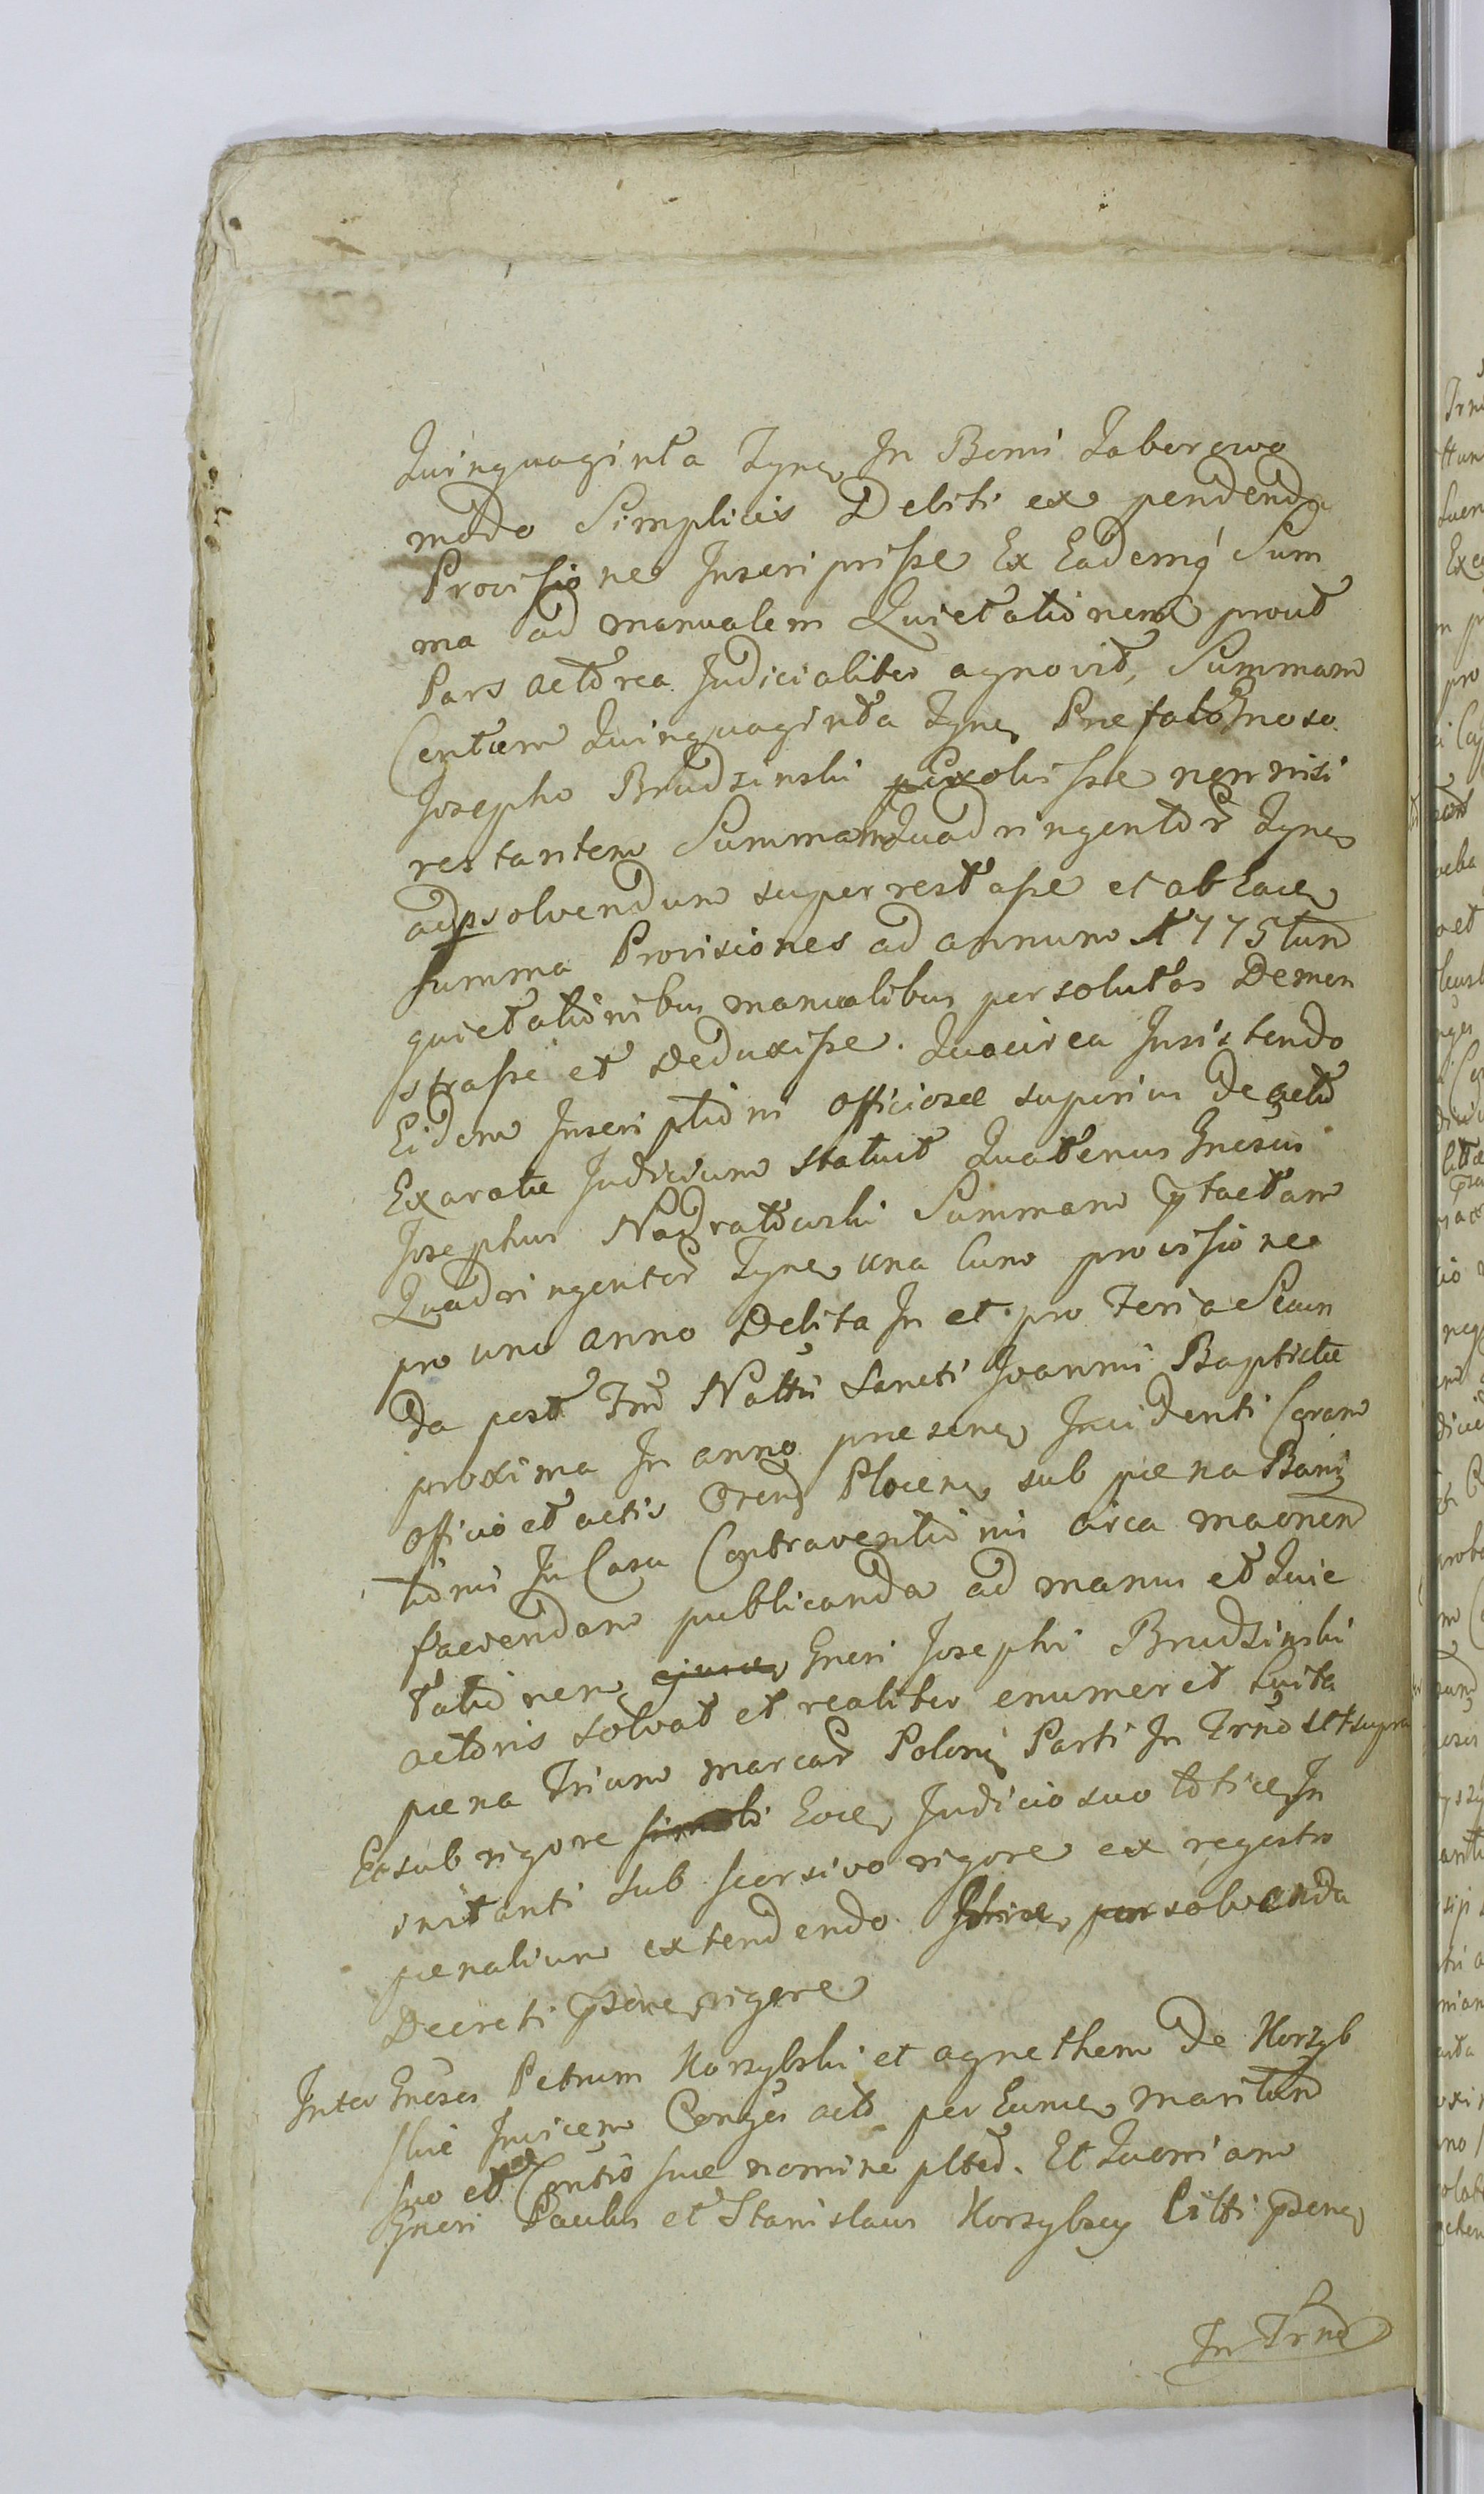 Quinquaginta Tynf In Bonis Zaborowo
modo Simplicis Debiti ex pendenda
Provisione Inscripsisse Ex Eademq Sum
ma ad manualem Quietationem prout
Pars actorea Judicialiter agnovit, Summam
Centum Quinquaginta Tynf Præfato Gnoso
Josepho Brudzinski exolvisse non nisi
restantem Summam Quadringentor Tynf
adpsolvendum superrestasse et ab Eade
summa Provisiones ad annum 1775tum
quietationibus manualibus persolutas Demon
strasse et Deduxisse. Quocirca Insistendo
Eidem Inscriptioni officiosæ superius de acto
Exaratæ Judicium statuit Quatenus Gnosus
Josephus Nadratowski Summam ptactam
Quadringentor Tynf una Cum provisione
pro uno anno Debita In et pro Feria Secun
da post Fm Nattis Sancti Joannis Baptistæ
proxima In anno præsen Incidenti Coram
officio et actis Crend Plocen sub pæna Bani
tionis In Casu Contraventionis circa maonem
faciendam publicanda ad manus et Quie
tationem Gnosi Josephi Brudzinski
actoris solvat et realiter enumeret Luita
pæna Trium marcar Poloni Parti In Trno Ut supra
Ea sub rigore Eode Judicio suo totide In
initanti sub scorsivo rigore ex regestro
pænalium extendendo persolvenda
Decreti psentis rigore
Inter Gnosos Petrum Korzybski et agnethem De Korzyb
skie Invicem Conges acto per Eunde maritum
suo et Contis suæ nomine plted. Et Quoniam
Gnosi Paulus et Stanislaus Korzybscy Citti psen
In Trno